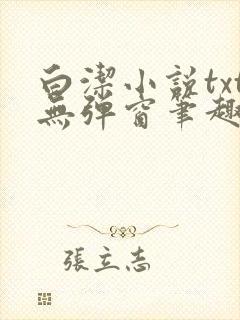 白潔小說txt
無彈窗筆趣
張立志